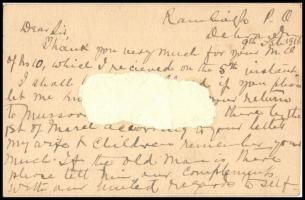 P. O.
Dear Sir,
Thank you very much for your M. O
of Rs 10, which I recieved on the 5th instant
I shall be if you please
let me your return
to Mussoorie there by the
1st of March according to your letter
my wife & children remember you
much. If the old man is there
please tell him our compliments
with our united regards to self